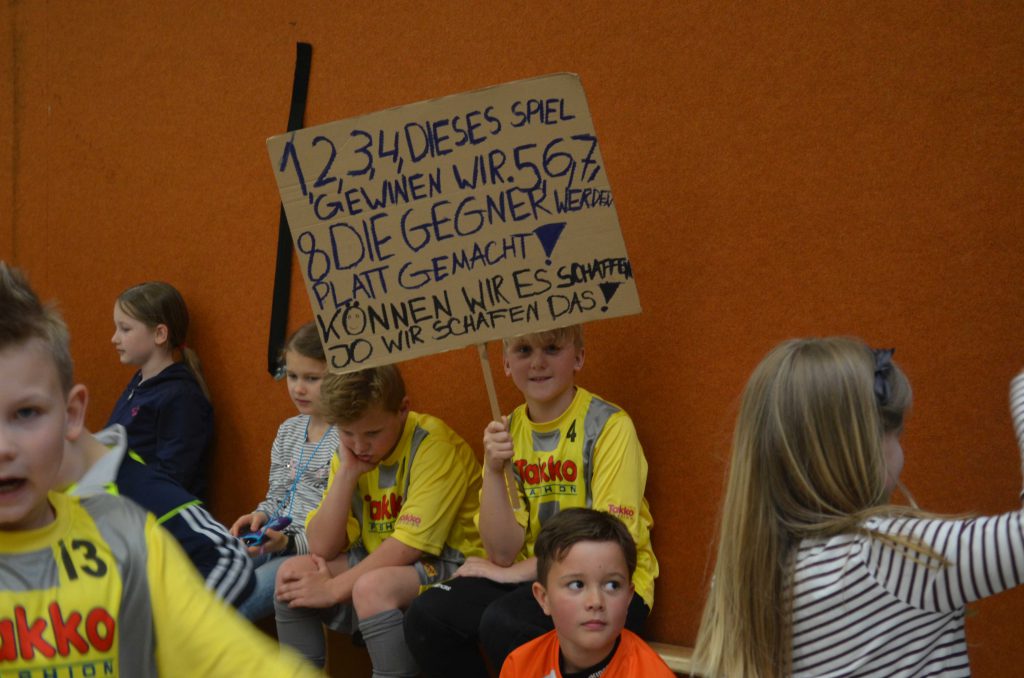 1,2,3,4, DIESES SPIEL
GEWINEN WIR. 5,6,7,
8 DIE GEGNER WERDEN
PLATT GEMACHT!
KÖNNEN WIR ES SCHAFFEN
JO WIR SCHAFEN DAS!
4
Takko
FASHION
Takko
Takko
13
Takko
FASHION